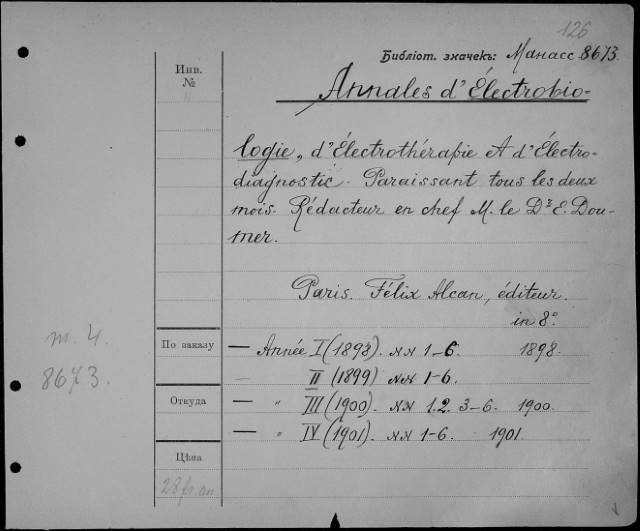 126
Библіот. значекъ: Манасс 8673.
Инв.
№
Annales d'Électrobio-
logie, d'Électrothérapie et d'Électro-
diagnostic. Paraissant tous les deux
mois. Rédacteur en chef M. le Dr E. Dou-
mer.
Paris. Félix Alcan, éditeur.
in 8º
т. 4.
8673.
По заказу
— Année I (1898). NN 1-6 1898.
— II (1899) NN 1-6.
Откуда
— " III (1900). NN 1.2. 3-6. 1900.
— " IV (1901). NN 1-6. 1901.
Цѣна
28 fr. an.